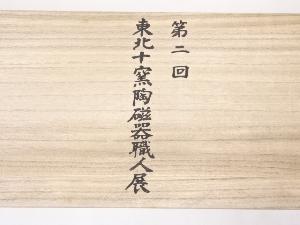 第二回
東北十窯陶磁器職人展